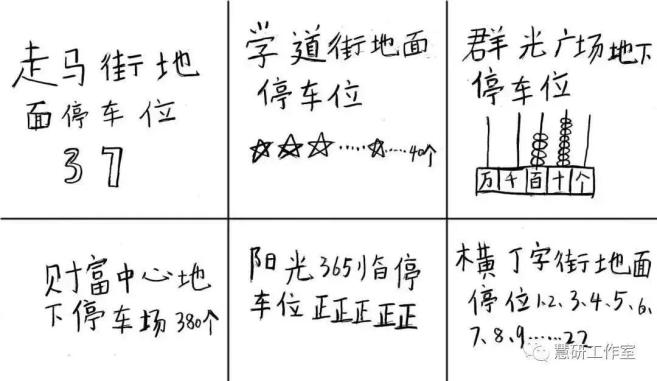 走马街地
面停车位
37
学道街地面
停车位
☆☆☆……☆……40个
群光广场地下
停车位
万千百十个
财富中心地
下停车场380个
阳光365临停
车位正正正正正
横丁字街地面
停位1、2、3、4、5、6、
7、8、9……22
慧研工作室